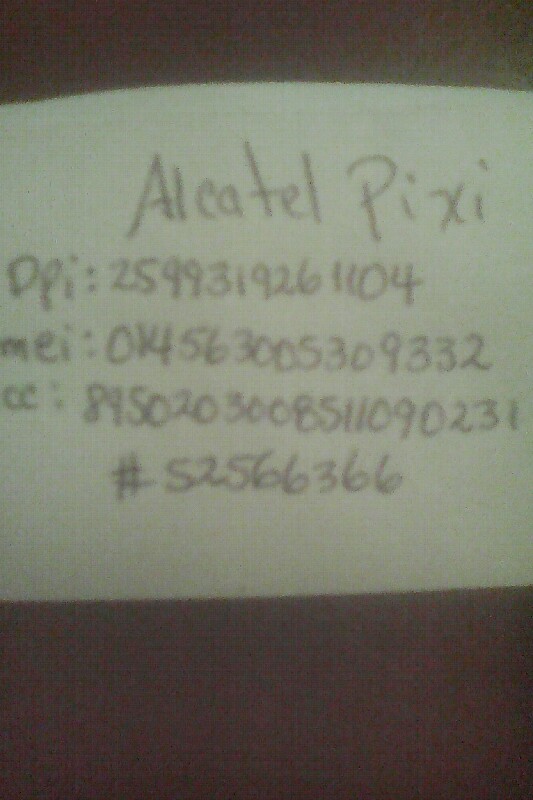 Alcatel Pixi
Dpi: 2599319261104
mei: 014563005309332
cc: 8950203008511090231
# 52566366